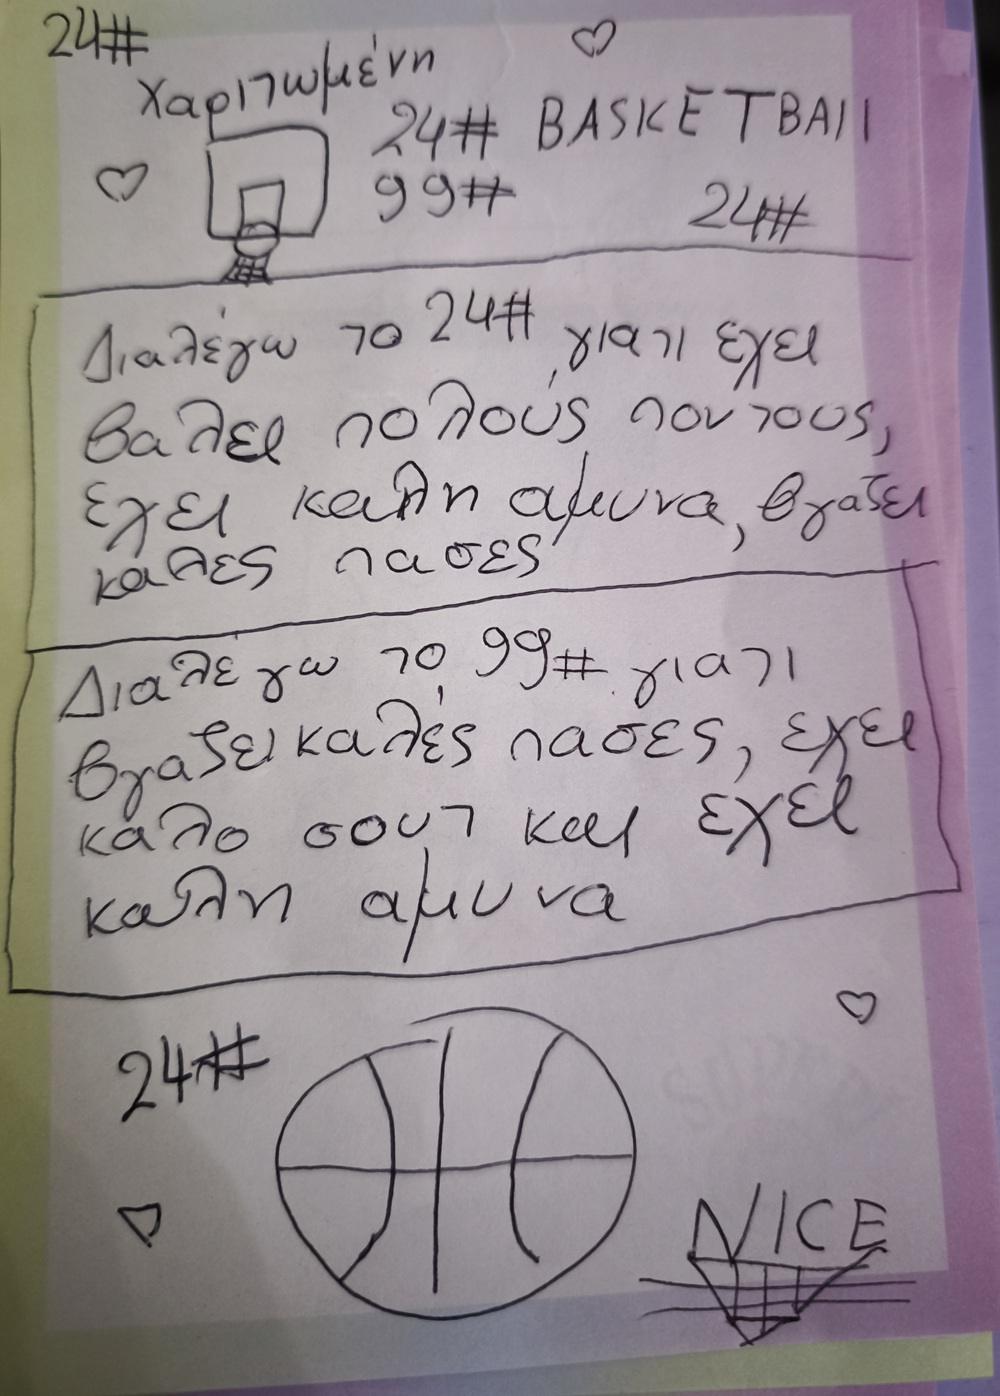 24#
Χαριτωμένη
24# BASKETBAll
99#
24#
Διαλέγω το 24# γιατι έχει
βαλει πολούς ποντους,
έχει καλη αμυνα, βγαζει
καλες πασες
Διαλέγω το 99# γιατι
βγαζει καλές πασες, έχει
καλο σουτ και έχει
καλη αμυνα
24#
NICE